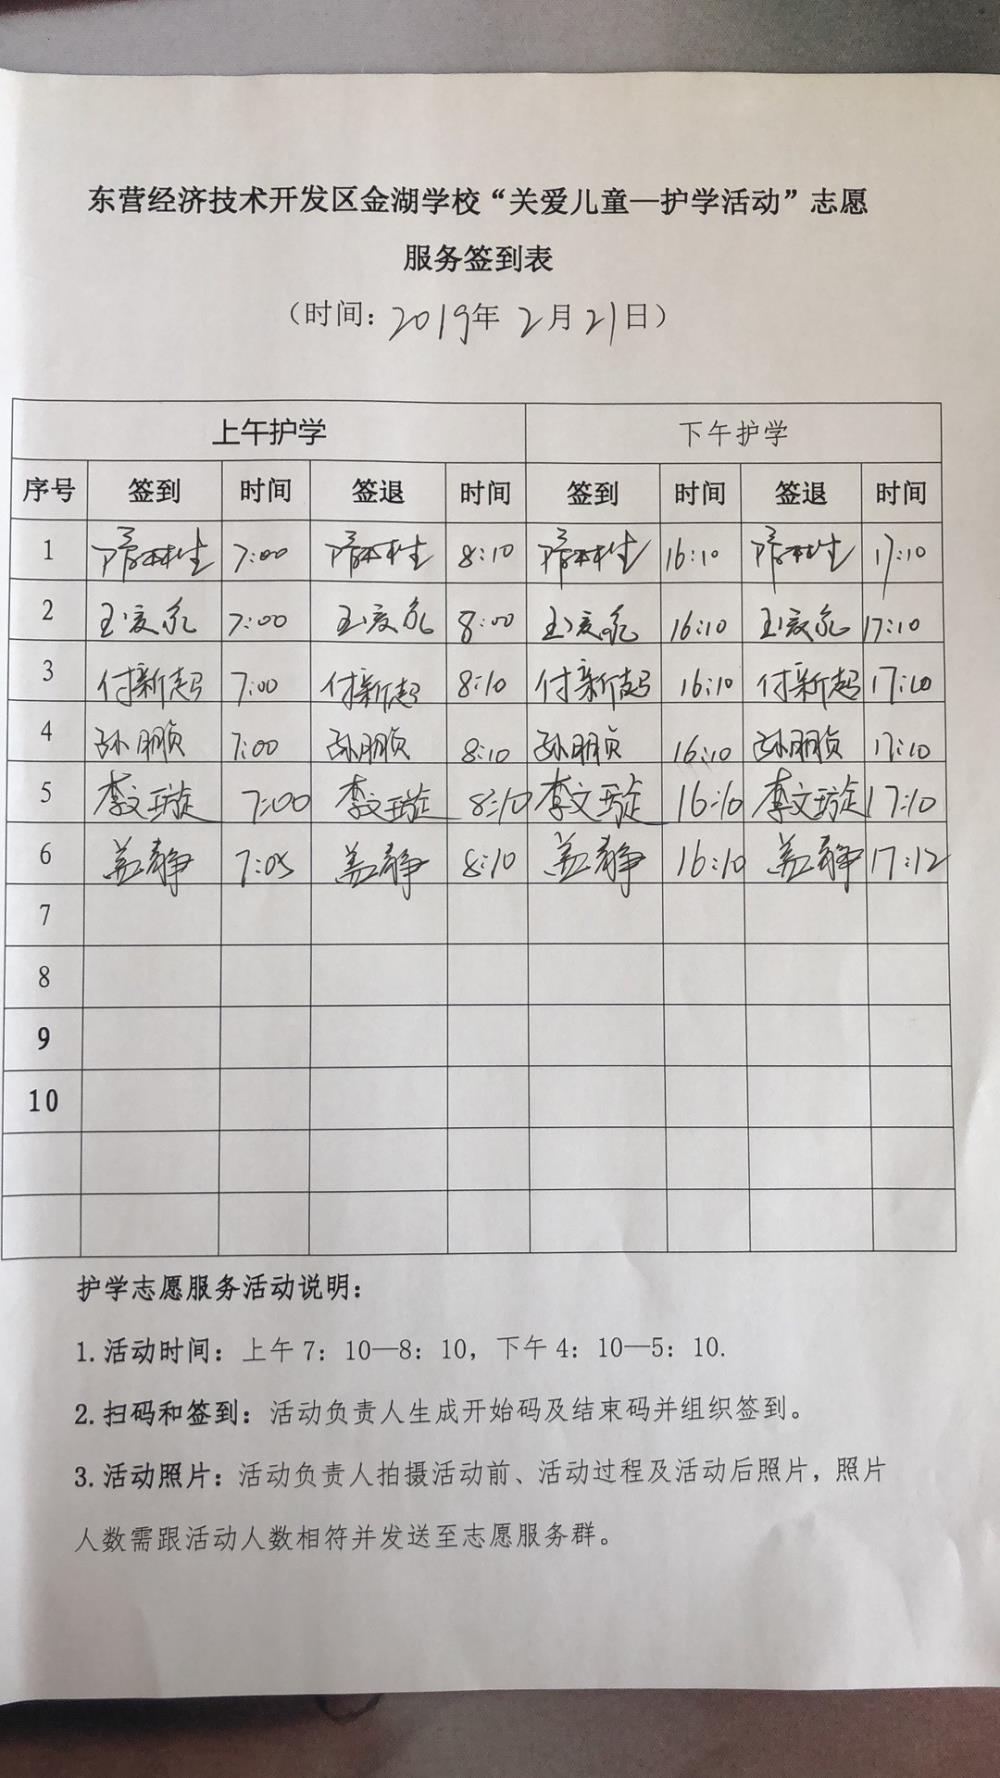 东营经济技术开发区金湖学校“关爱儿童—护学活动”志愿
服务签到表
（时间：2019年 2月21日）
上午护学 下午护学
序号 签到 时间 签退 时间 签到 时间 签退 时间
1 7:00 8:10 16:10 17:10
2 7:00 8:00 16:10 17:10
3 付新起 7:00 付新起 8:10 付新起 16:10 付新起 17:10
4 孙朋贞 7:00 孙朋贞 8:10 孙朋贞 16:10 孙朋贞 17:10
5 李文璇 7:00 李文璇 8:10 李文璇 16:10 李文璇 17:10
6 盖静 7:05 盖静 8:10 盖静 16:10 盖静 17:12
7
8
9
10
护学志愿服务活动说明：
1.活动时间：上午 7：10—8：10，下午 4：10—5：10.
2.扫码和签到：活动负责人生成开始码及结束码并组织签到。
3.活动照片：活动负责人拍摄活动前、活动过程及活动后照片，照片
人数需跟活动人数相符并发送至志愿服务群。